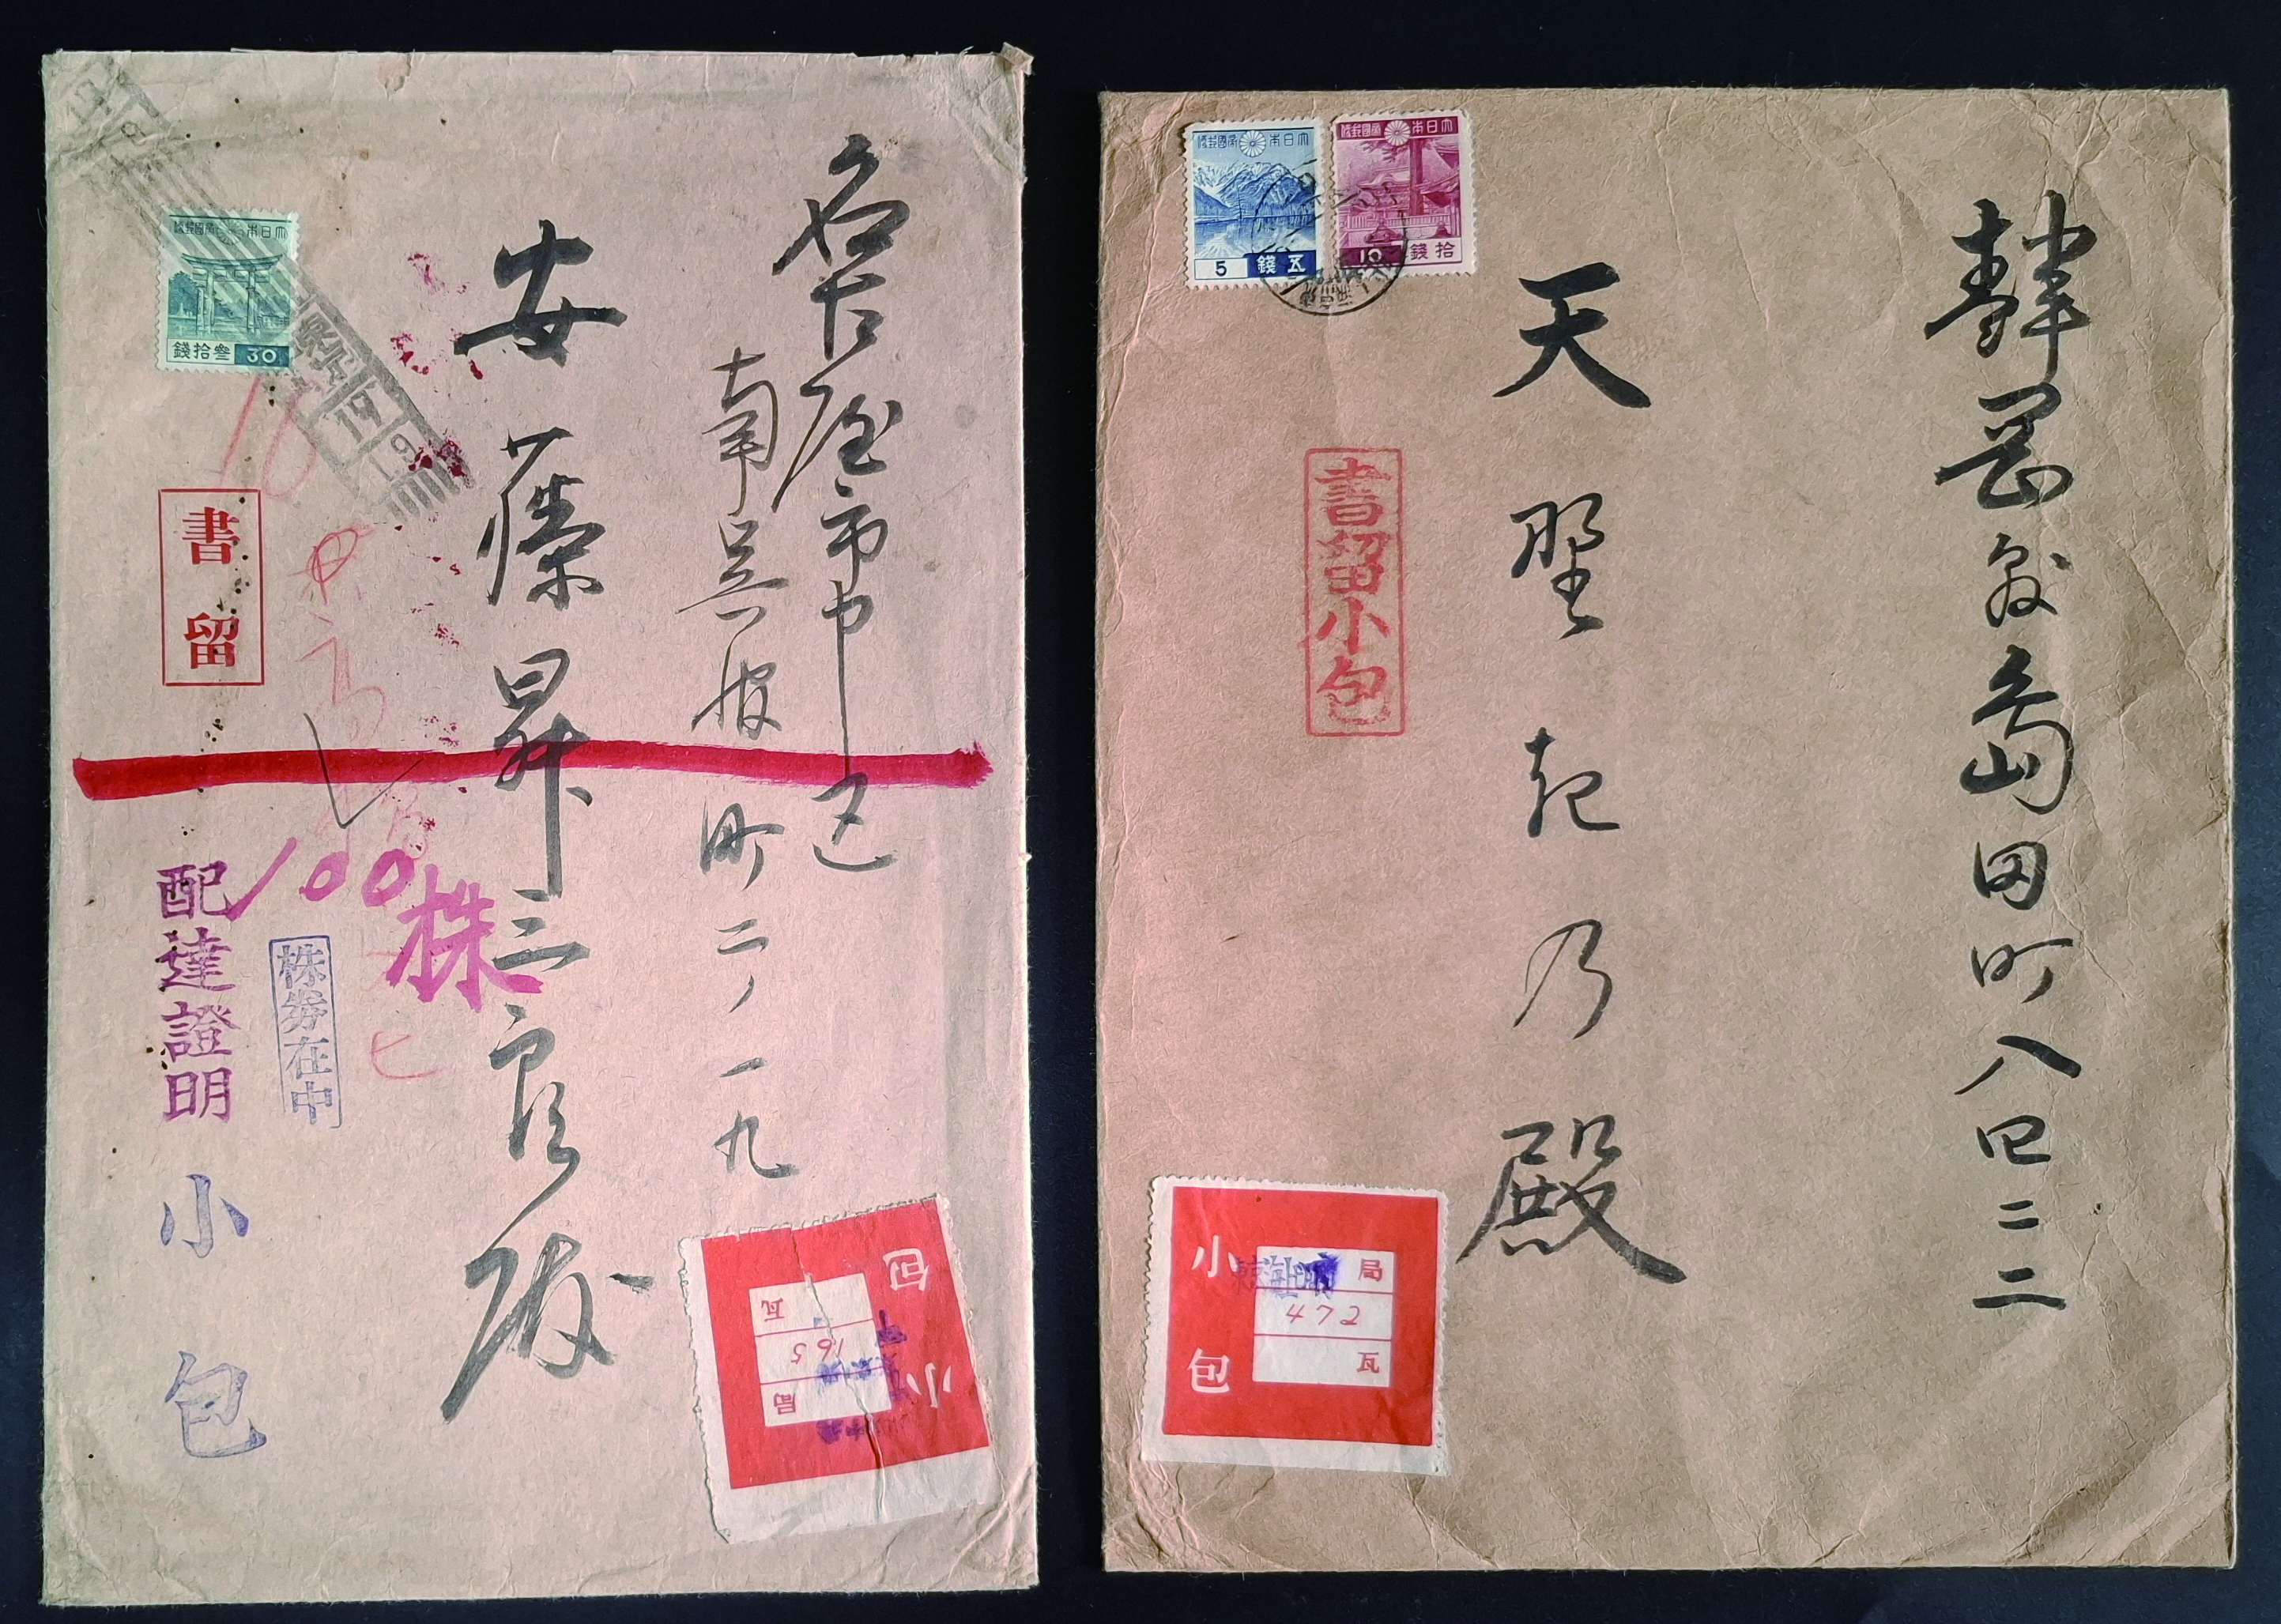 名古屋市中区
南呉服町二ノ一九
安藤昇三郎殿
大日本帝國郵便
參拾錢
30
19
9
書留
100株
配達證明
株券在中
小包
小包
局
165
瓦
靜岡縣島田町八四二二
天野起乃殿
大日本帝國郵便
五錢
5
大日本帝國郵便
拾錢
10
書留小包
小包
東京海上ビル内
局
472
瓦